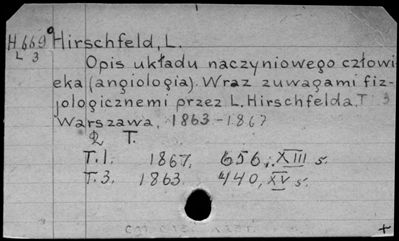 H669 Hirschfeld, L.
L3
Opis układu naczyniowego człowi
eka (angiologia). Wraz zuwagami fiz-
jologicznemi przez L. Hirschfelda. T. 3
Warszawa, 1863-1867
2 T.
T.1. 1867. 656, XIII s.
T.3. 1863. 440, XV s.
+